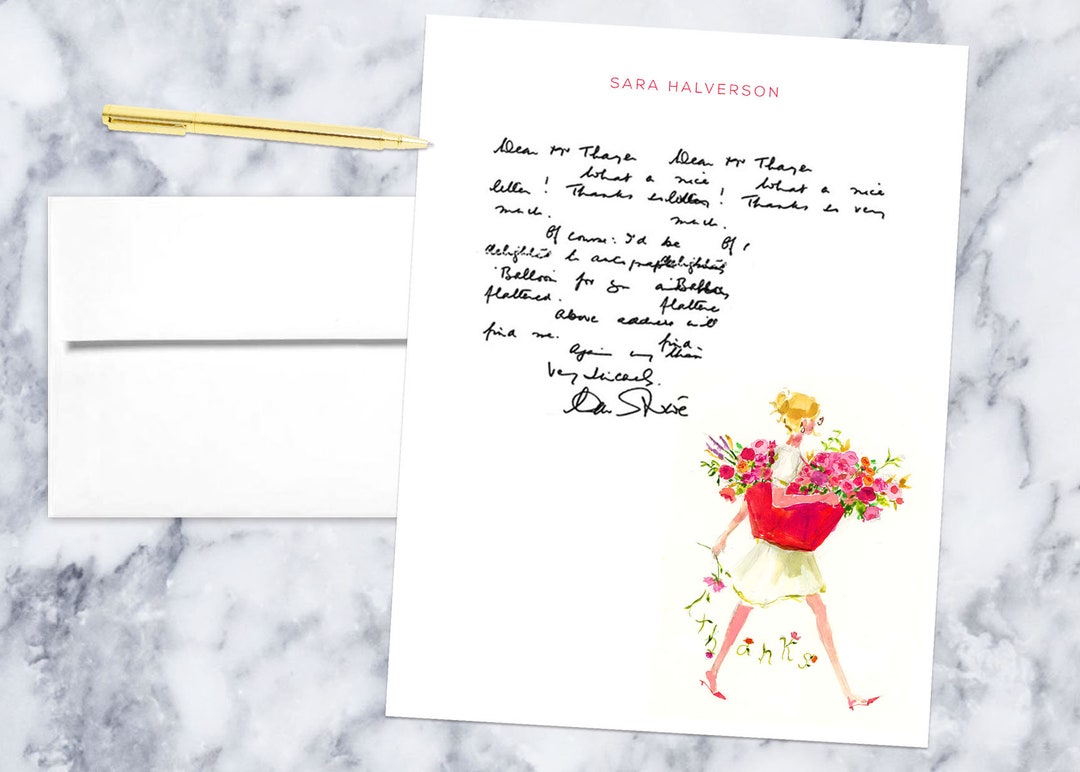 SARA HALVERSON
Dear Mr Thayer Dear Mr Thayer
What a nice ! What a nice
letter! Thanks so ! Thanks so very
much. much.
Of course: I'd be Of
delighted to autograph delighted
'Balloon for you
flattered. flattere
Above address will
find me. find
Again my than
Very sincerely,
thanks